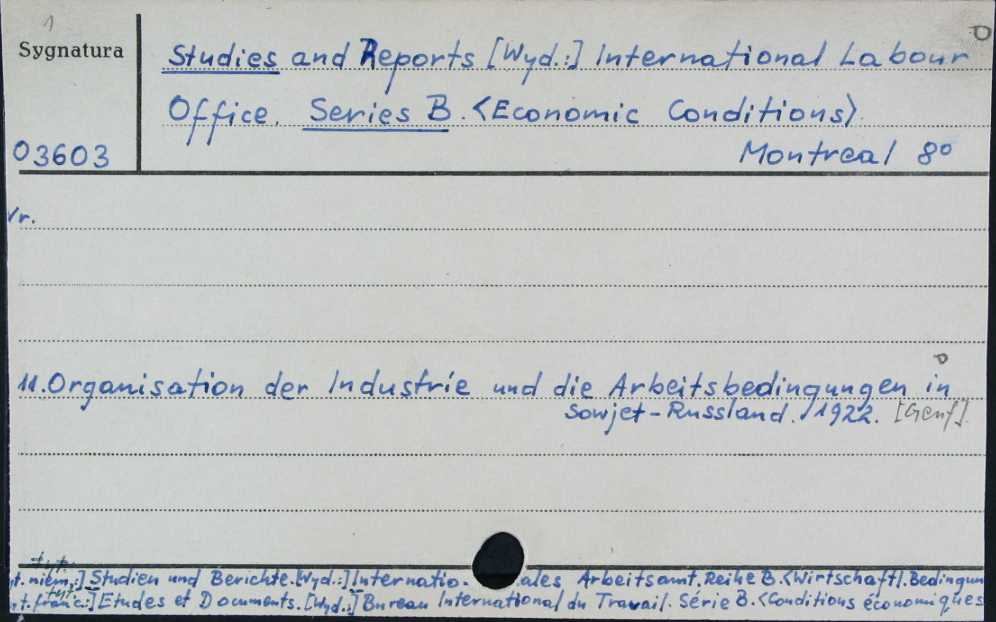 1
Sygnatura
Studies and Reports [Wyd.:] International Labour
Office. Series B. <Economic Conditions>
03603
Montreal 8°
Nr.
11. Organisation der Industrie und die Arbeitsbedingungen in
Sowjet-Russland. 1922. [Genf].
tyt.
t. niem.:] Studien und Berichte. [Wyd.:] Internatio- ales Arbeitsamt. Reihe B. <Wirtschaftl. Bedingun
tyt.
t. franc.:] Etudes et Documents. [Wyd.:] Bureau International du Travail. Série B. <Conditions économiques